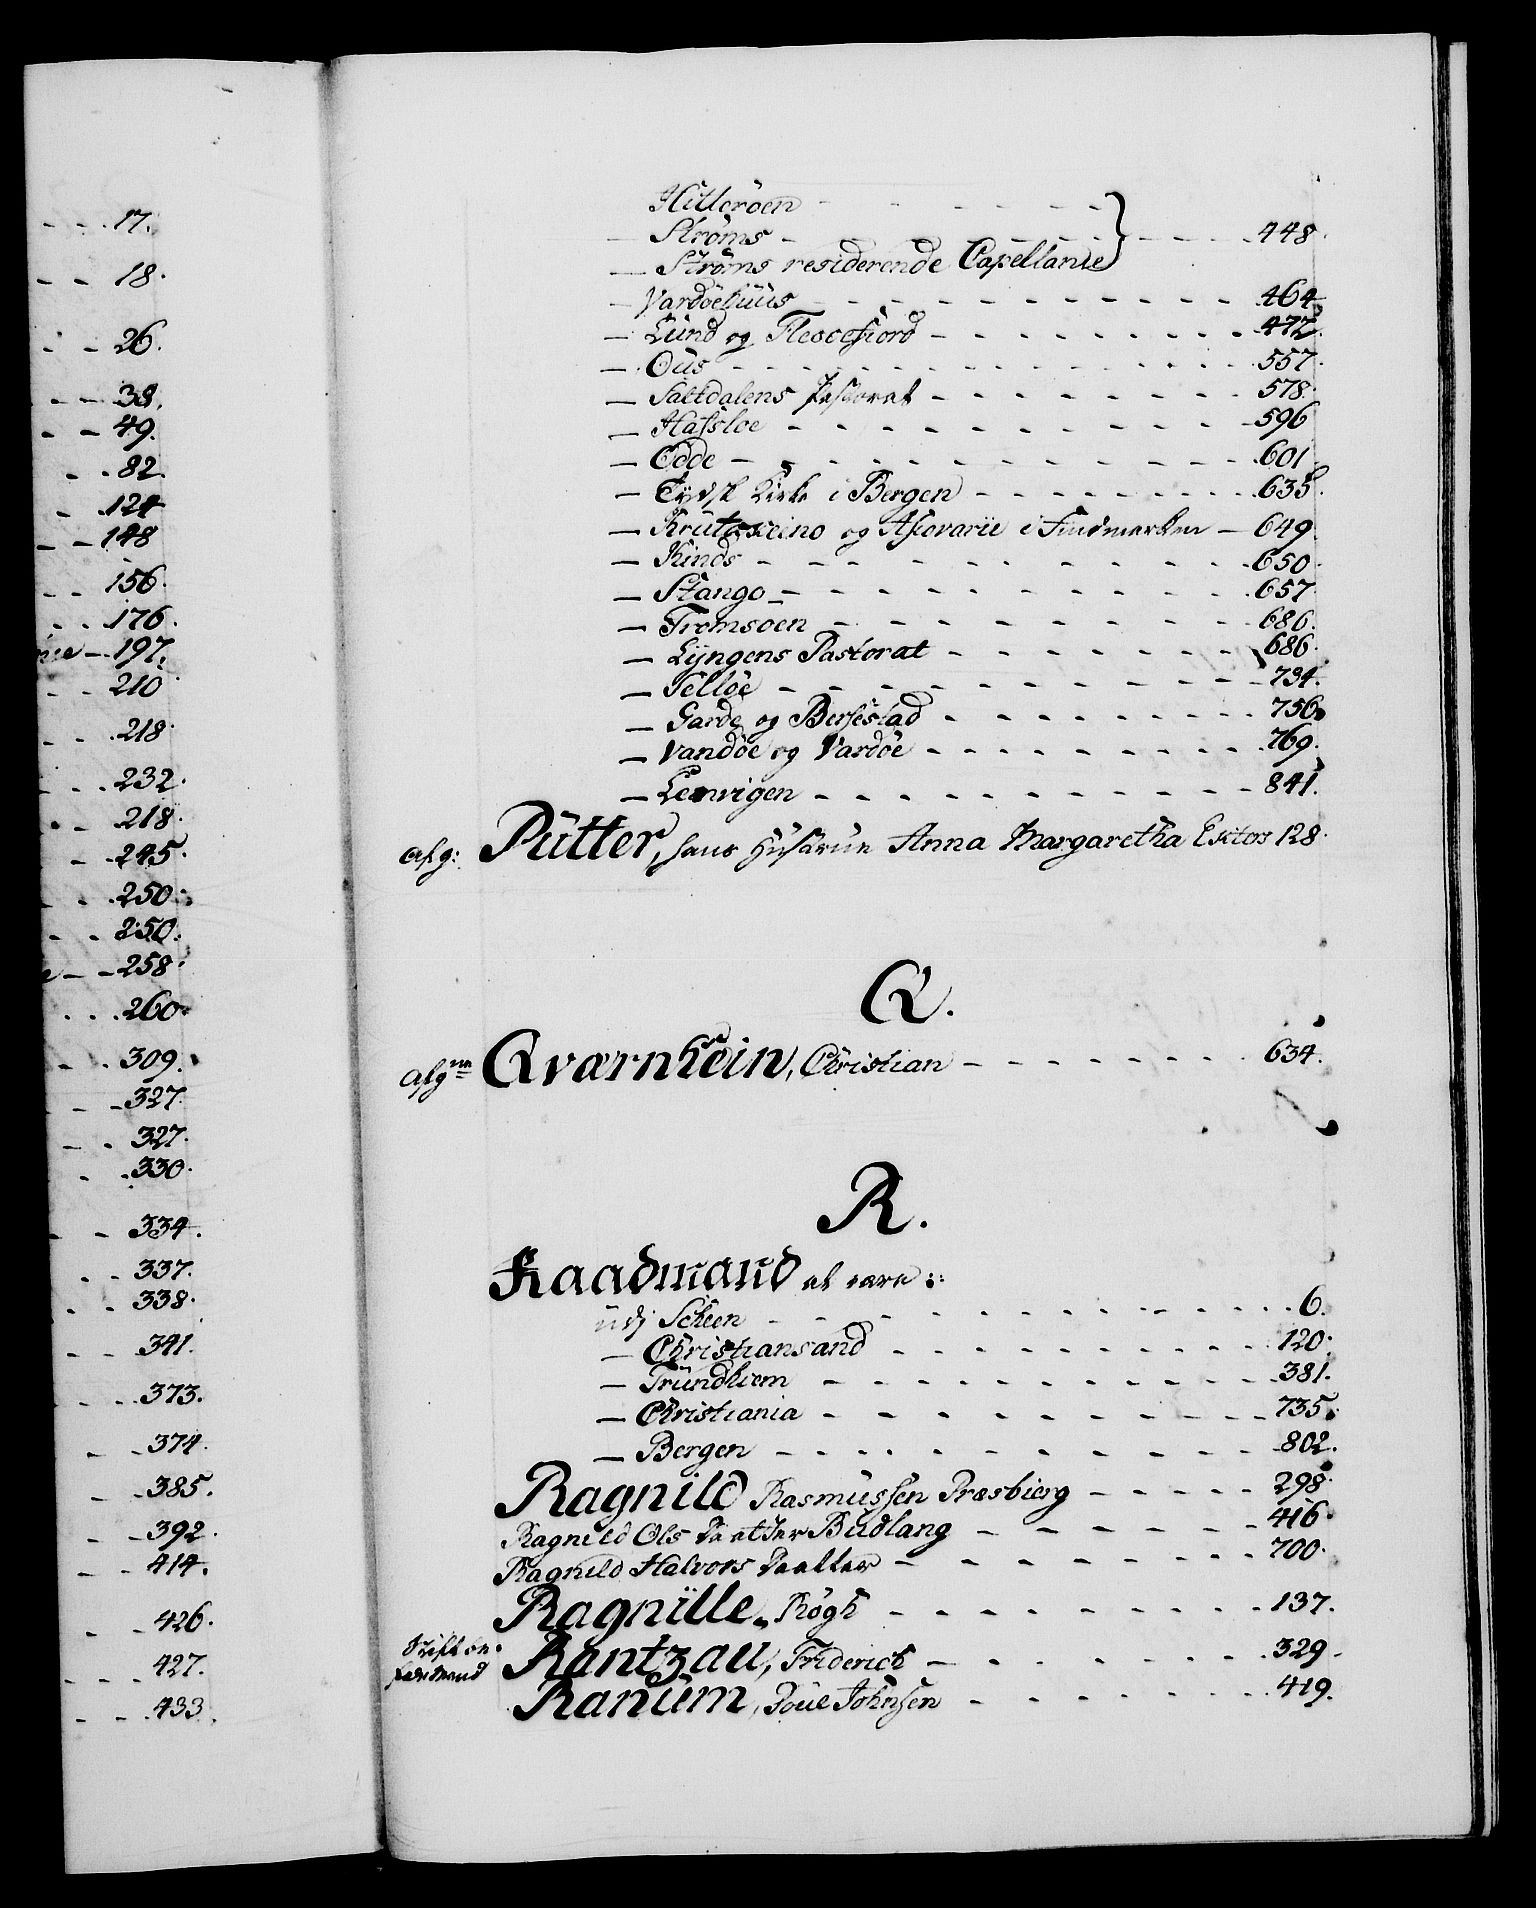 17.
18.
26.
38.
49.
82.
124
148
156.
176.
197.
210
218.
232.
218.
245.
250.
250.
258.
260.
309.
327.
327.
330.
334.
337.
338.
341.
373.
374.
385.
392.
414.
426.
427.
433.
Hitterøen
— Strøms - - - - 448.
— Strøms residerende Capellanie
— Vardøehuus - - - - 464
— Lund og Fleccefiord - - - - 472.
— Ous - - - - 557.
— Saltdalens Pastorat - - - - 578.
— Hafsloe - - - - 596
— Odde - - - - 601
— Tydsk Kirke i Bergen - - - - 635.
— Krutokeino og Afiovarie i Findmarken — 649.
— Kinds - - - - 650.
— Stange - - - - 657.
— Tromsøen - - - - 686.
— Lyngens Pastorat - - - - 686.
— Felløe - - - - 734.
— Garde og Berfestad - - - - 756.
— Vandøe og Vardøe - - - - 769.
— Lenvigen - - - - 841.
afg: Pütter, hans Hustrue Anna Margaretha Esters 128.
Q.
afgne Qværnhein, Christian - - - - 634.
R.
Raadmand at være:
udj Scheen - - - - 6.
— Christiansand - - - - 120.
— Trundhiem - - - - 381.
— Christiania - - - - 735.
— Bergen - - - - 802.
Ragnild Rasmussen Præsbierg - - - - 298.
Ragnild Ols Daatter Budlang - - - - 416.
Ragnild Halvors Daatter - - - - 700.
Ragnille Røgh - - - - 137.
Rantzau, Friderich - - - - 329.
Ranum, Poul Johnsen - - - - 419.